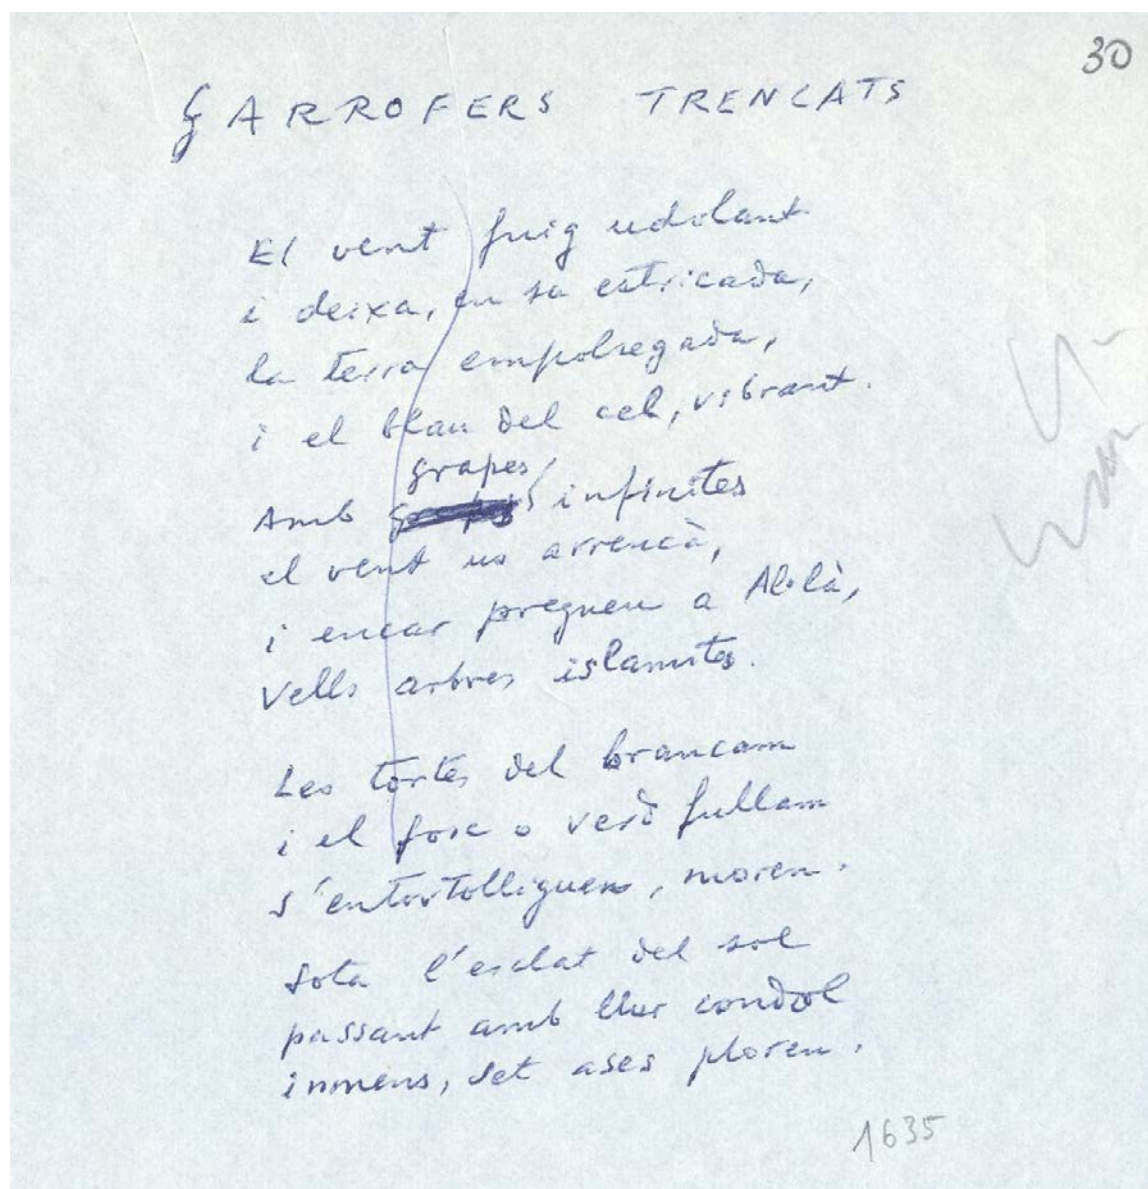 30
GARROFERS TRENCATS
El vent fuig udolant
i deixa, en sa estricada,
la terra empolsegada,
i el blau del cel, vibrant.
grapes
Amb infinites
el vent us arrencà,
i encar pregueu a Al·là,
vells arbres islamites.
Les tortes del brancam
i el fosc o verd fullam
s'entortolliguen, moren.
Sota l'esclat del sol
passant amb llur condol
inmens, set ases ploren.
1635